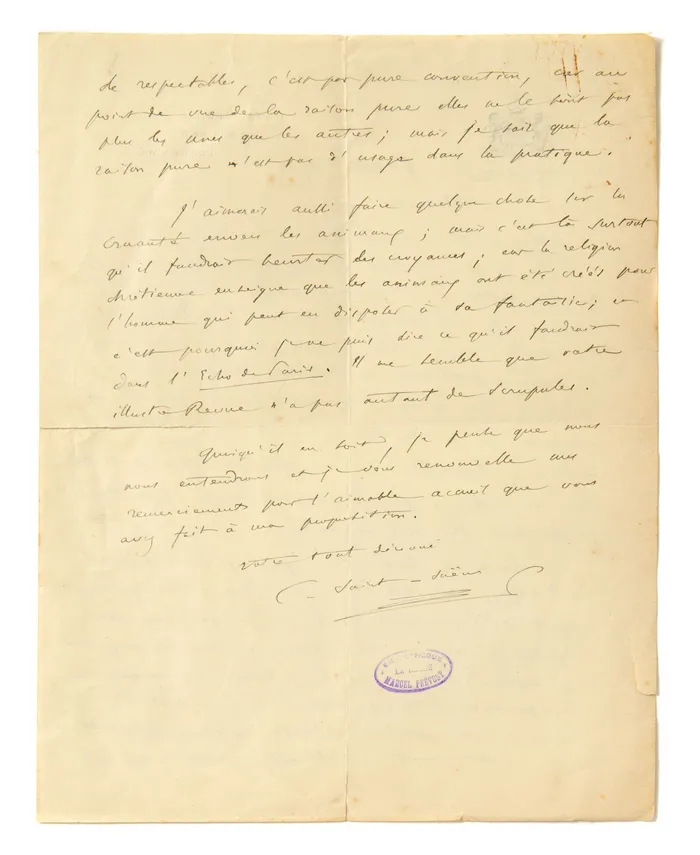 de respectables, c'est par pure convention, car au
point de vue de la raison pure elles ne le sont pas
plus les unes que les autres ; mais je sais que la
raison pure n'est pas d'usage dans la pratique.
J'aimerais aussi faire quelque chose sur la
cruauté envers les animaux ; mais c'est là surtout
qu'il faudrait heurter des croyances ; car la religion
chrétienne enseigne que les animaux ont été créés pour
l'homme qui peut en disposer à sa fantaisie ; et
c'est pourquoi je ne puis dire ce qu'il faudrait
dans l'Echo de Paris. Il me semble que votre
illustre Revue n'a pas autant de scrupules.
Quoiqu'il en soit, je pense que nous
nous entendrons et je vous renouvelle mes
remerciements pour l'aimable accueil que vous
avez fait à ma proposition.
votre tout dévoué
C. Saint-Saëns
MARCEL PRÉVOST